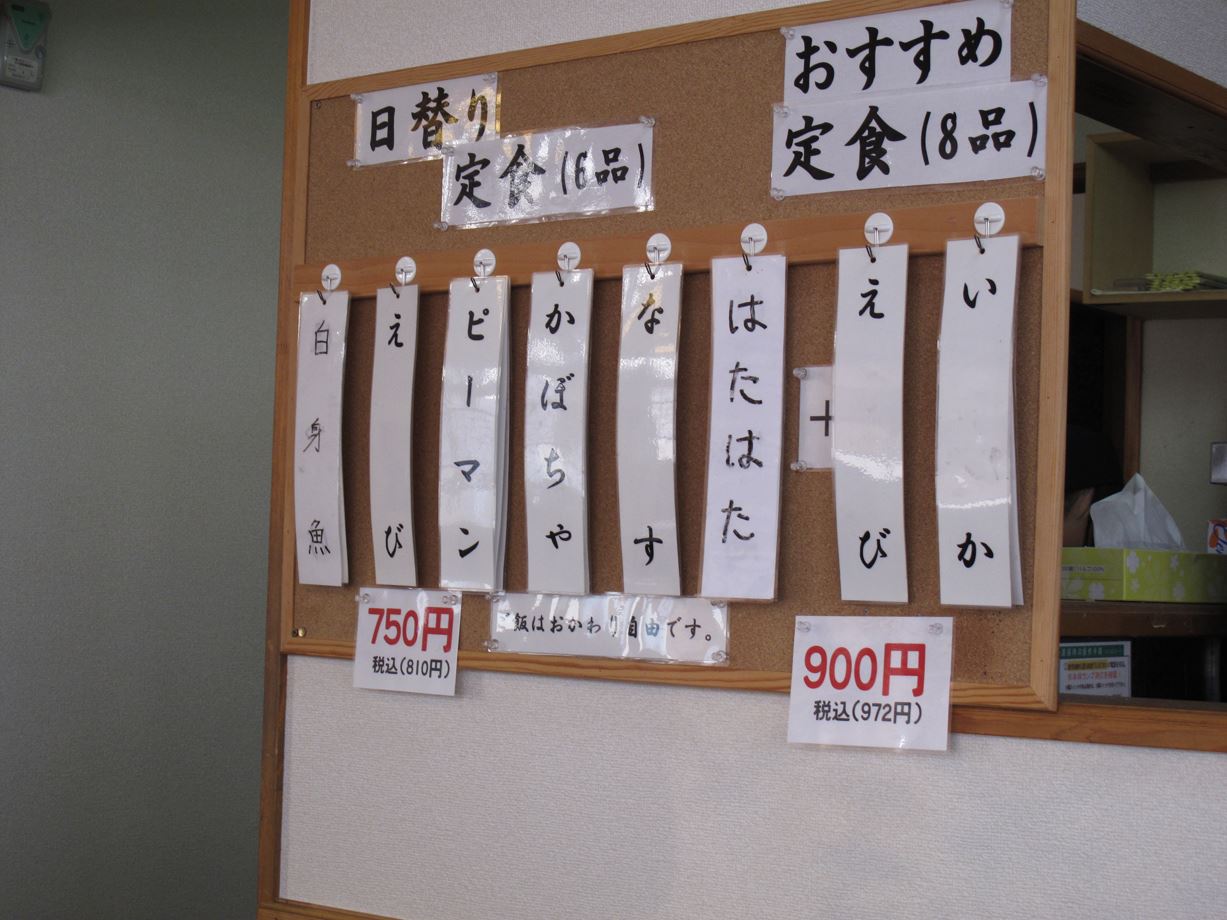 おすすめ
定食(8品)
日替り
定食(6品)
いか
えび
+
はたはた
なす
かぼちゃ
ピーマン
えび
白身魚
750円
税込(810円)
ご飯はおかわり自由です。
900円
税込(972円)